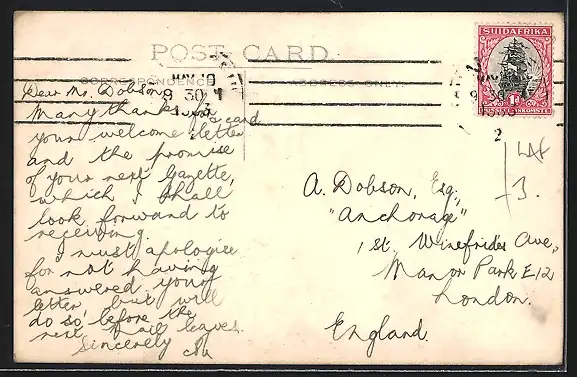 POST CARD
CORRESPONDENCE
ADDRESS ONLY.
SUIDAFRIKA
1D
POSSEEL INKOMSTE
NOV 10
9 30
2
Dear Mr. Dobson,
Many thanks for card
your welcome letter
and the promise
of your next Gazette,
which I shall
look forward to
receiving.
I must apologise
for not having
answered your
letter, but will
do so before the
next mail leaves.
Sincerely
A. Dobson, Esq.,
"Anchorage"
1 St. Winefride's Ave,
Manor Park E12
London.
England.
LAF
3.